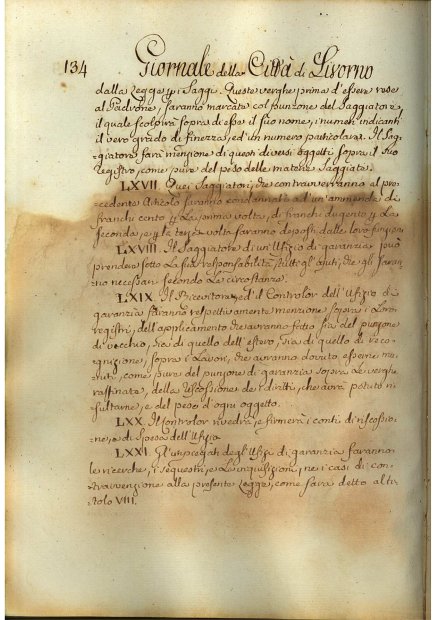 134 Giornale della Città di Livorno
dalla Legge pei Saggi. Queste verghe prima d'essere rese
al Padrone, saranno marcate col punzone del Saggiatore,
il quale scolpirà sopra di esse il suo nome, i numeri indicanti
il vero grado di finezza, ed un numero particolare. Il Sag-
giatore farà menzione di questi diversi oggetti sopra il suo
Registro, come pure del peso delle materie Saggiate.
LXVII Quei Saggiatori, che contravverranno al pre
cedente Articolo saranno condannati ad un'ammenda di
franchi cento p. La prima volta, di franchi dugento p. La
seconda, e p. la terza volta saranno deposti dalle loro funzioni
LXVIII. Il Saggiatore di un'Ufizio di garanzia può
prendere sotto La sua responsabilità tutti gl'ajuti, che gli saran
no necessari secondo Le circostanze.
LXIX. Il Ricevitore, ed il Controlor dell'Ufizio di
garanzia faranno respettivamente menzione sopra i Loro
registri, dell'applicamento che avranno fatto sia del punzone
di vecchio, sia di quello dell'estero, sia di quello di reco-
gnizione, sopra i Lavori, che avranno dovuto esserne mu-
niti, come pure del punzone di garanzia sopra Le verghe
raffinate, della riscossione de' diritti, che avrà potuto ri
sultarne, e del peso d'ogni oggetto.
LXX. Il Controlor rivedrà, e firmerà i conti di riscossio-
ne, e di spesa dell'Ufizio
LXXI. Gl'impiegati degli Ufizj di garanzia faranno
le ricerche, i sequestri, e Le inquisizioni, ne i casi di con-
travvenzione alla presente Legge, come sarà detto al ti-
tolo VIII.